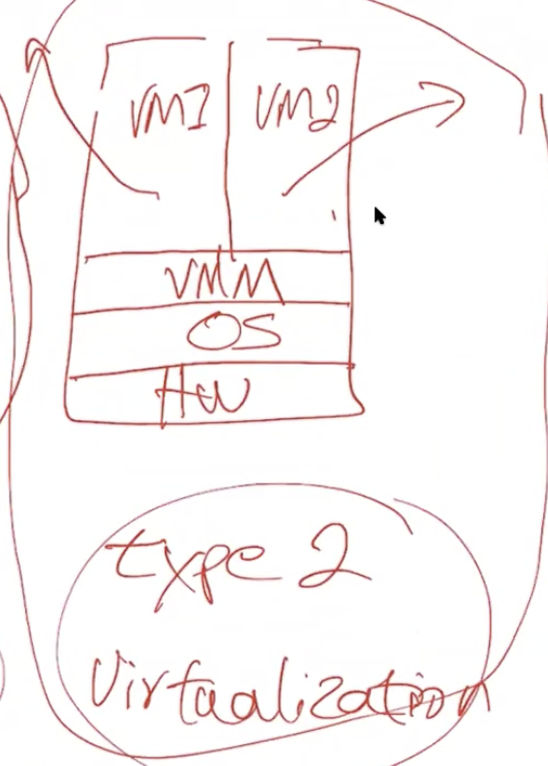 VM1 VM2
VMM
OS
HW
type 2
Virtualization